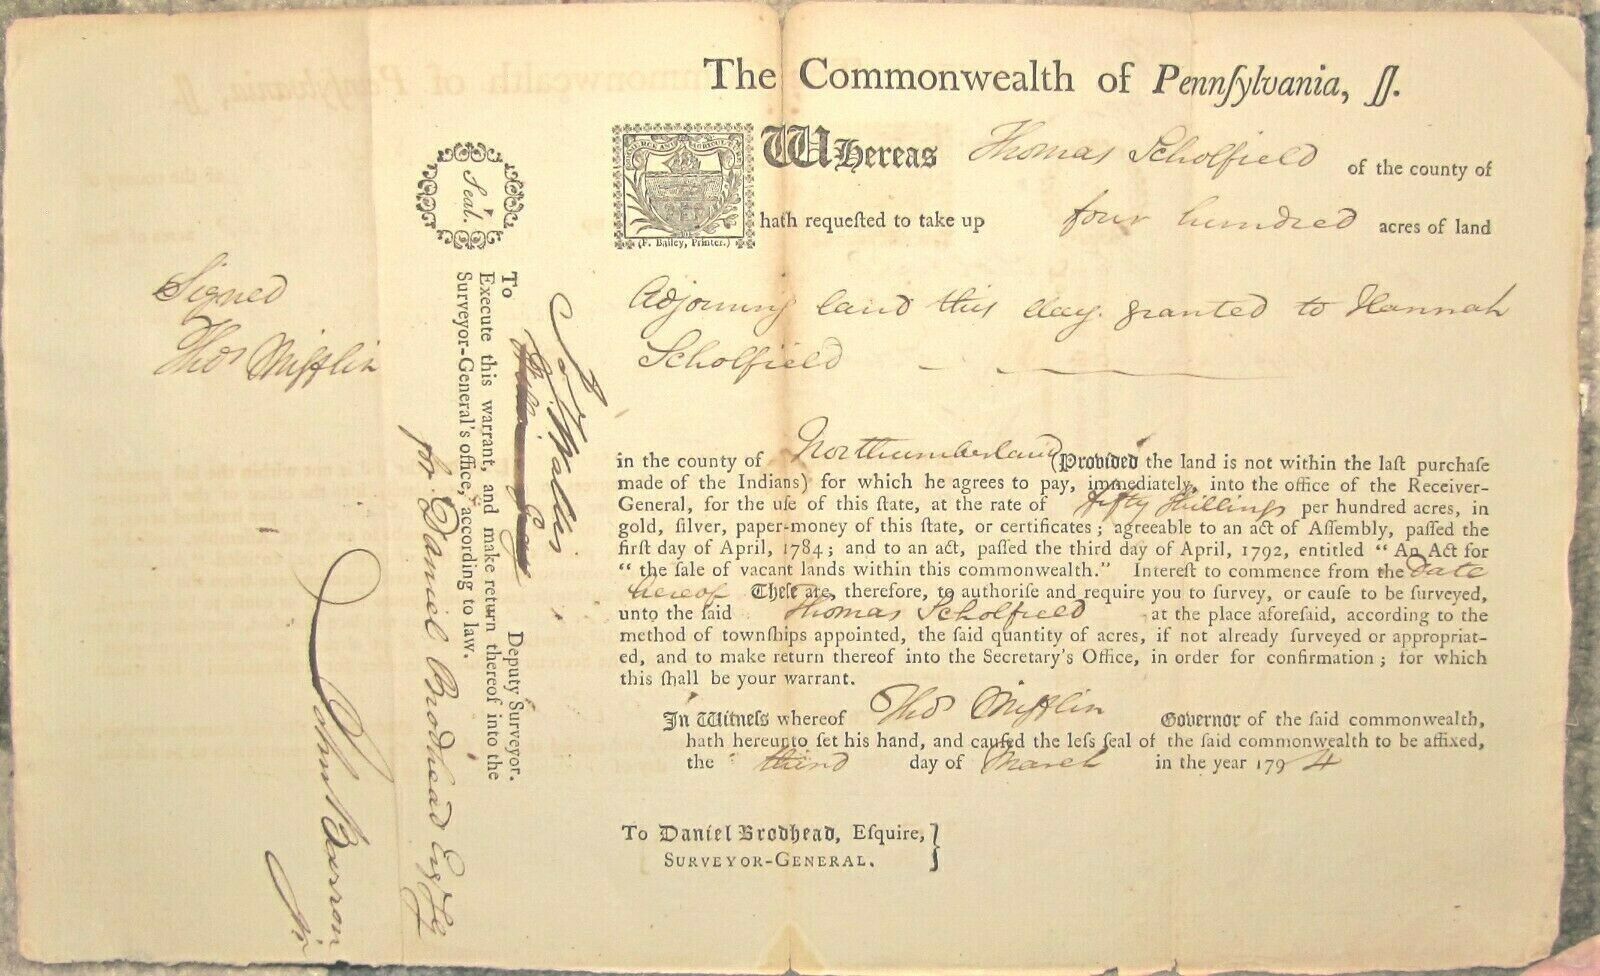 The Commonwealth of Pennſylvania, ſſ.
COMMERCE AND AGRICULTURE
(F. Bailey, Printer.)
WHereas Thomas Scholfield of the county of
hath requeſted to take up four hundred acres of land
Adjoining land this day granted to Hannah
Scholfield
in the county of Northumberland (Provided the land is not within the laſt purchaſe
made of the Indians) for which he agrees to pay, immediately, into the office of the Receiver-
General, for the uſe of this ſtate, at the rate of fifty Shillings per hundred acres, in
gold, ſilver, paper-money of this ſtate, or certificates; agreeable to an act of Aſſembly, paſſed the
firſt day of April, 1784; and to an act, paſſed the third day of April, 1792, entitled “ An Act for
“ the ſale of vacant lands within this commonwealth.” Intereſt to commence from the Date
hereof Theſe are, therefore, to authoriſe and require you to ſurvey, or cauſe to be ſurveyed,
unto the ſaid Thomas Scholfield at the place aforeſaid, according to the
method of townſhips appointed, the ſaid quantity of acres, if not already ſurveyed or appropriat-
ed, and to make return thereof into the Secretary's Office, in order for confirmation; for which
this ſhall be your warrant.
In Witneſs whereof Thos Mifflin Governor of the ſaid commonwealth,
hath hereunto ſet his hand, and cauſed the leſs ſeal of the ſaid commonwealth to be affixed,
the third day of March in the year 1794
To Daniel Brodhead, Eſquire,}
SURVEYOR-GENERAL.
Seal.
Signed
Thos Mifflin
To Jos. Wallis
Deputy Surveyor.
Execute this warrant, and make return thereof into the
Surveyor-General's office, according to law.
for Daniel Brodhead Esq SG
John Barron
Jr